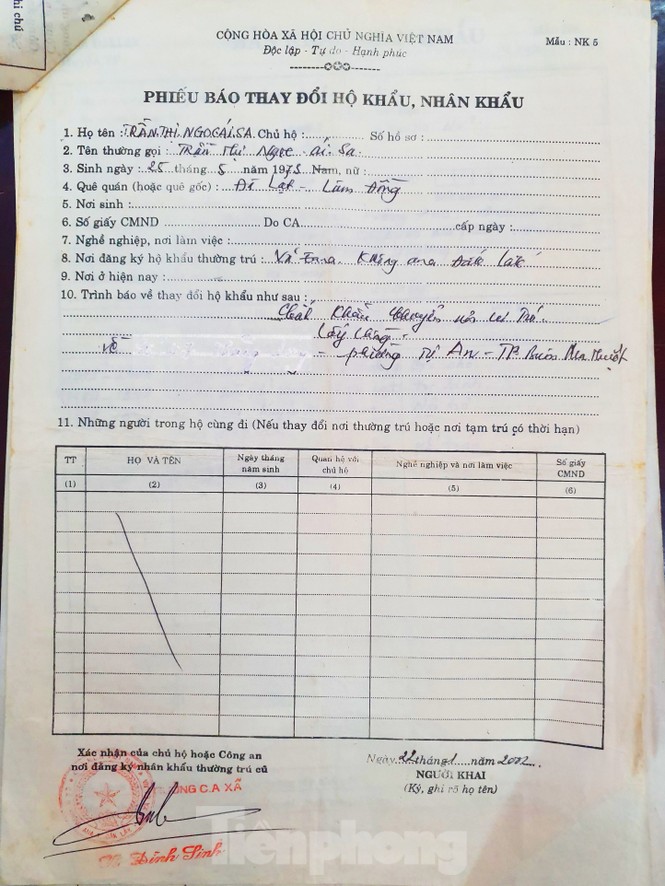 hi chú
CỘNG HÒA XÃ HỘI CHỦ NGHĨA VIỆT NAM
Mẫu : NK 5
Độc lập - Tự do - Hạnh phúc
PHIẾU BÁO THAY ĐỔI HỘ KHẨU, NHÂN KHẨU
1. Họ tên : TRẦN THỊ NGỌC ÁI SA. Chủ hộ : Số hồ sơ :
2. Tên thường gọi : Trần Thị Ngọc Ái Sa.
3. Sinh ngày : 25 tháng 5 năm 1973 Nam, nữ :
4. Quê quán (hoặc quê gốc) : Đà Lạt - Lâm Đồng
5. Nơi sinh :
6. Số giấy CMND Do CA cấp ngày :
7. Nghề nghiệp, nơi làm việc :
8. Nơi đăng ký hộ khẩu thường trú : Krông ana Đăk Lăk
9. Nơi ở hiện nay :
10. Trình báo về thay đổi hộ khẩu như sau :
Cắt khẩu chuyển nơi cư trú.
Lý
Về - phường Tự An - TP. Buôn Ma Thuột
11. Những người trong hộ cùng đi (Nếu thay đổi nơi thường trú hoặc nơi tạm trú có thời hạn)
TT HỌ VÀ TÊN Ngày tháng năm sinh Quan hệ với chủ hộ Nghề nghiệp và nơi làm việc Số giấy CMND
(1) (2) (3) (4) (5) (6)
Xác nhận của chủ hộ hoặc Công an
nơi đăng ký nhân khẩu thường trú cũ
Ngày 22 tháng 1 năm 2002
NGƯỜI KHAI
(Ký, ghi rõ họ tên)
C.A XÃ
Đình Sinh
Tiềnphong